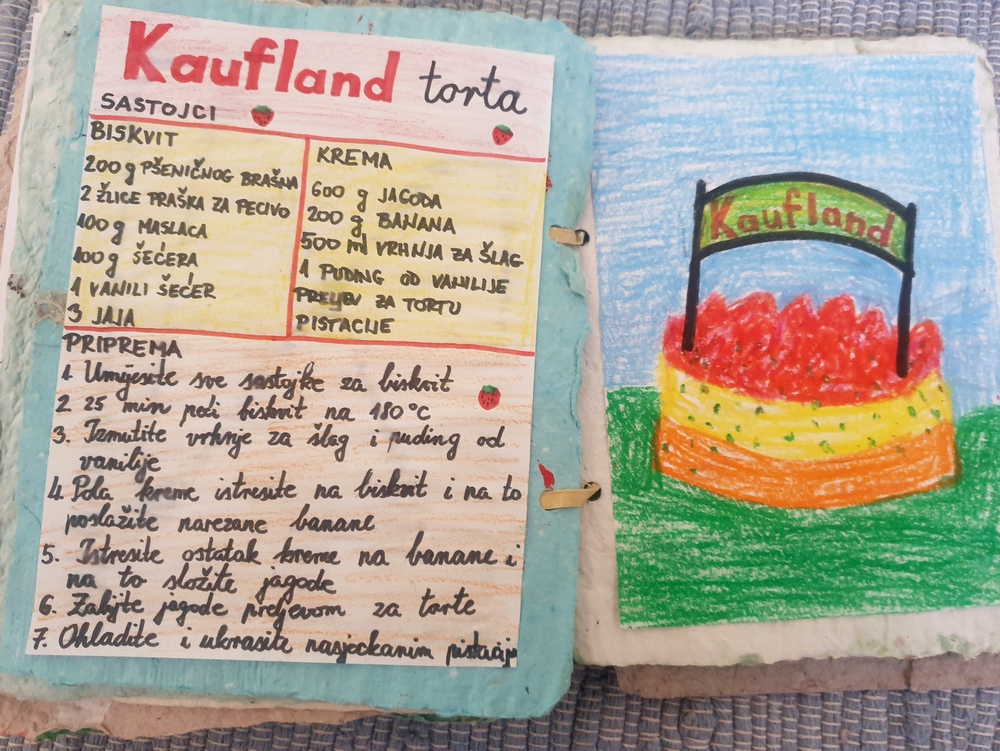 Kaufland torta
SASTOJCI
BISKVIT
200 g PŠENIČNOG BRAŠNA
2 ŽLICE PRAŠKA ZA PECIVO
100 g MASLACA
100 g ŠEĆERA
1 VANILI ŠEĆER
3 JAJA
KREMA
600 g JAGODA
200 g BANANA
500 ml VRHNJA ZA ŠLAG
1 PUDING OD VANILIJE
PRELJEV ZA TORTU
PISTACIJE
PRIPREMA
1. Umijesite sve sastojke za biskvit
2 25 min peči biskvit na 180°C
3. Izmutite vrhnje za šlag i puding od
vanilije
4. Pola kreme istresite na biskvit i na to
poslažite narezane banane
5. Istresite ostatak kreme na banane i
na to složite jagode
6. Zalijte jagode preljevom za torte
7. Ohladite i ukrasite nasjeckanim pistacija
Kaufland